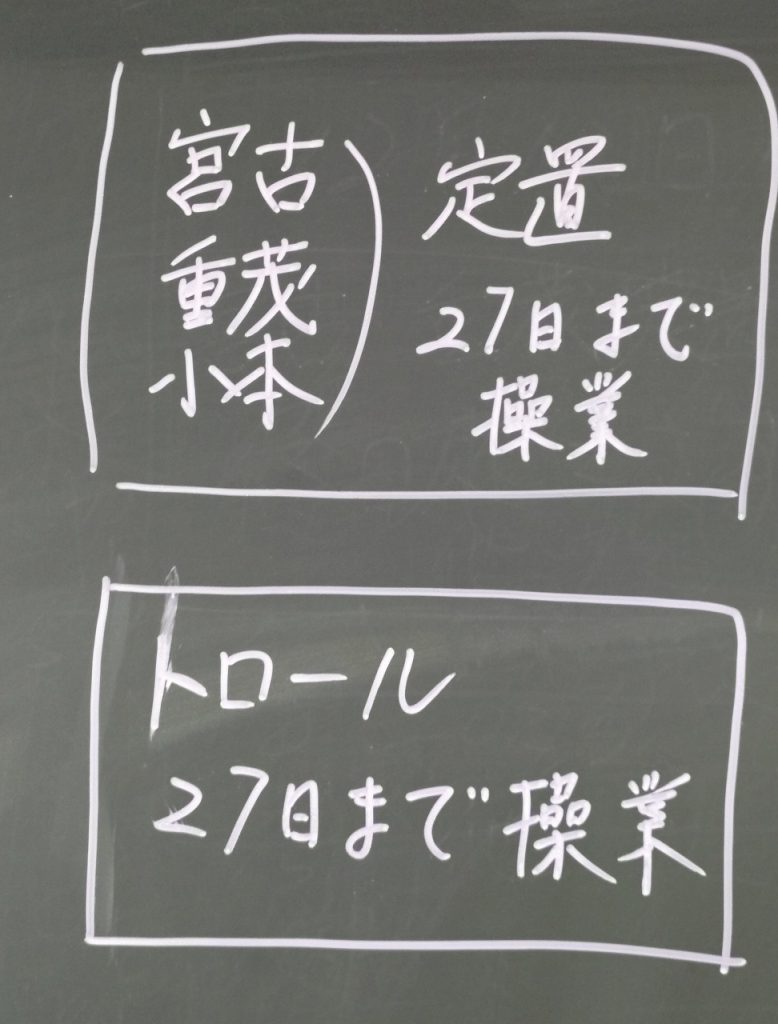 宮古
重茂
小本
定置
27日まで
操業
トロール
27日まで操業